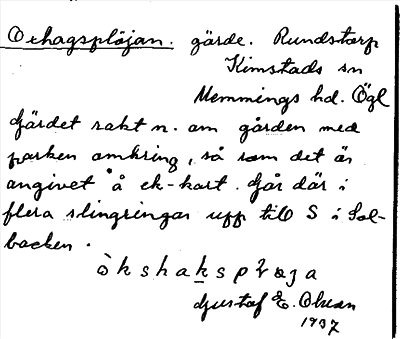 Oxhagsplöjan. gärde. Rundstorp
Kimstads sn
Memmings hd. Ögl
Gärdet rakt n. om gården med
parken omkring, så som det är
angivet å ek-kart. Går där i
flera slingringar upp till S i Sol-
backen.
Gustaf E. Olsson
1937